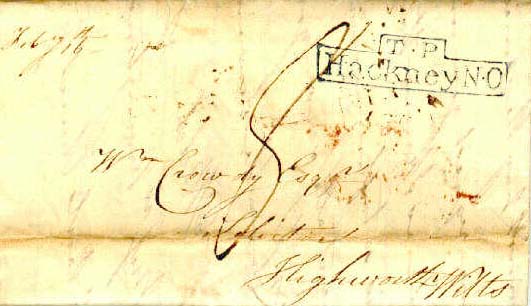 T.P
Hackney N.O
8
Wm Crowdy Esqr
Solicitor
Highworth Wilts